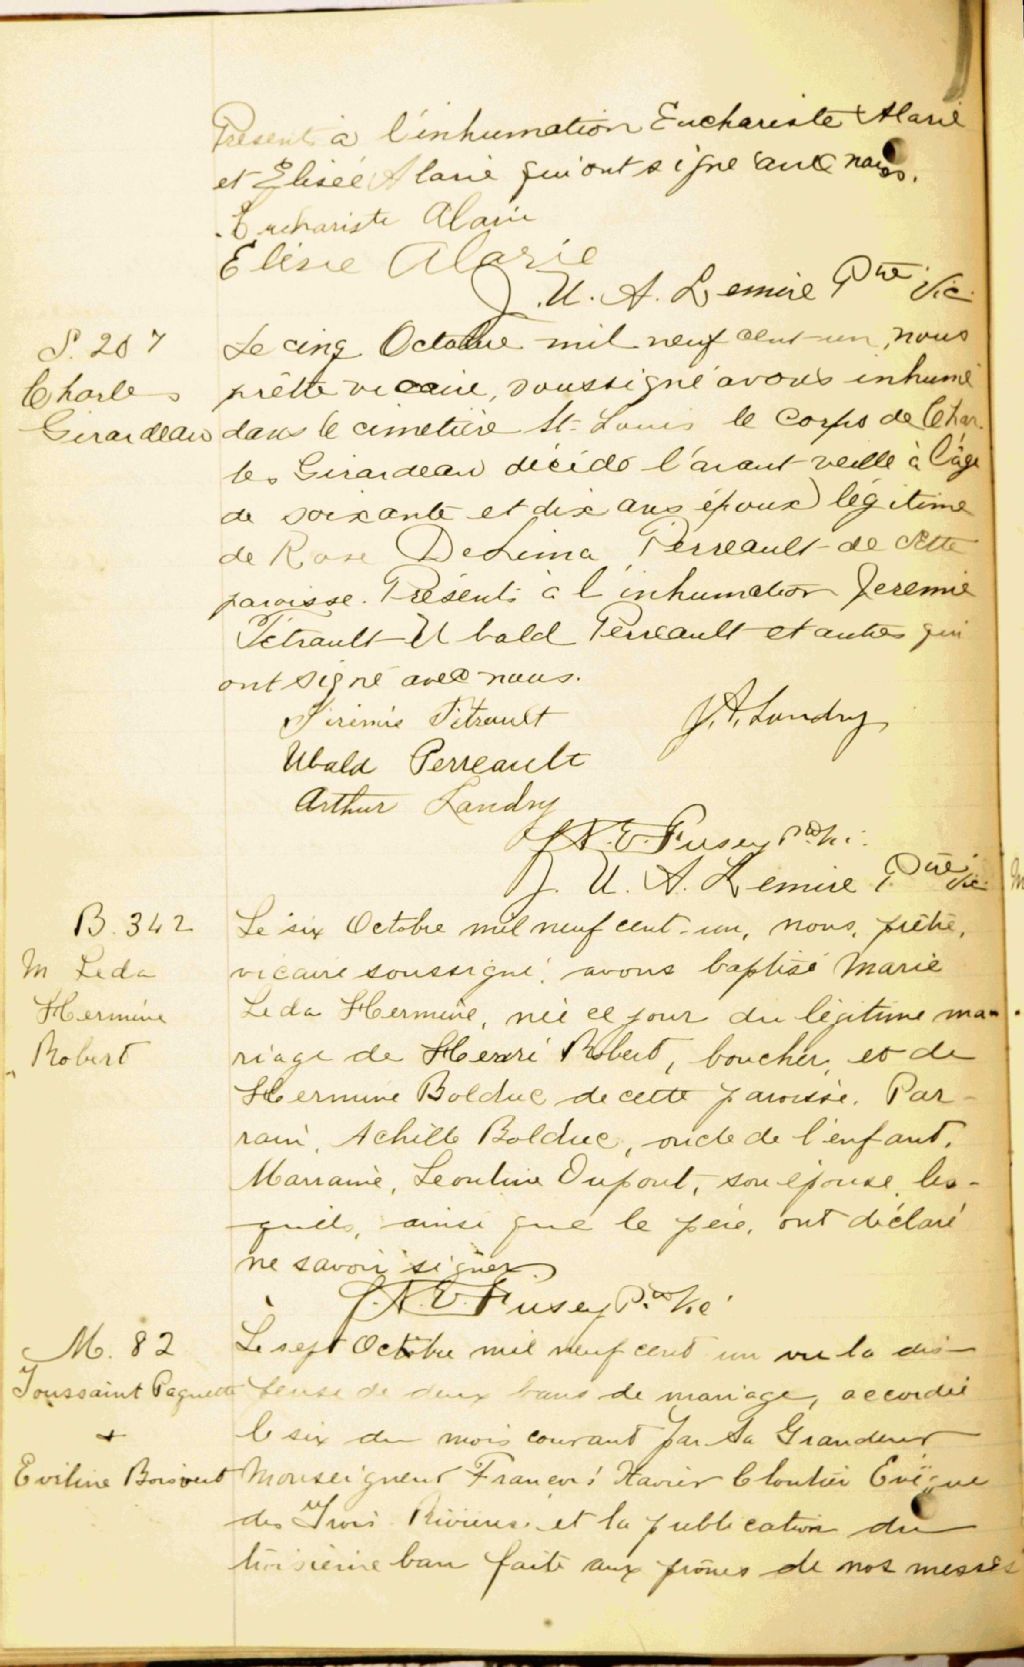 Présents à l'inhumation Euchariste Alarie
et Elisée Alarie qui ont signé avec nous.
Euchariste Alarie
Elisée Alarie
J. U. A. Lemire Ptre Vic.
S. 207
Charles
Girardeau
Le cinq Octobre mil neuf cent-un, nous
prêtre vicaire, soussigné avons inhumé
dans le cimetière St-Louis le corps de Char-
les Girardeau décédé l'avant veille à l'âge
de soixante et dix ans époux légitime
de Rose DeLima Perreault de cette
paroisse. Présents à l'inhumation Jeremie
Tétrault Ubald Perreault et autres qui
ont signé avec nous.
Jérémie Tétrault J. A. Landry
Ubald Perreault
Arthur Landry
J. N. E. Fusey Ptre Vic.
J. U. A. Lemire Ptre Vic.
B. 342
M Leda
Hermine
Robert
Le six Octobre mil neuf cent-un, nous, prêtre,
vicaire soussigné, avons baptisé Marie
Leda Hermine, née ce jour du légitime ma-
riage de Henri Robert, boucher, et de
Hermine Bolduc de cette paroisse. Par-
rain, Achille Bolduc, oncle de l'enfant.
Marraine, Leontine Dupont, son épouse, les-
quels, ainsi que le père, ont déclaré
ne savoir signer.
J. N. E. Fusey Ptre Vic
M. 82
Toussaint Paquette
+
Eviline Boisvert
Le sept Octobre mil neuf cent un vu la dis-
pense de deux bans de mariage, accordée
le six du mois courant par Sa Grandeur
Monseigneur François Xavier Cloutier Evêque
des Trois Rivières et la publication du
troisième ban faite aux prônes de nos messes